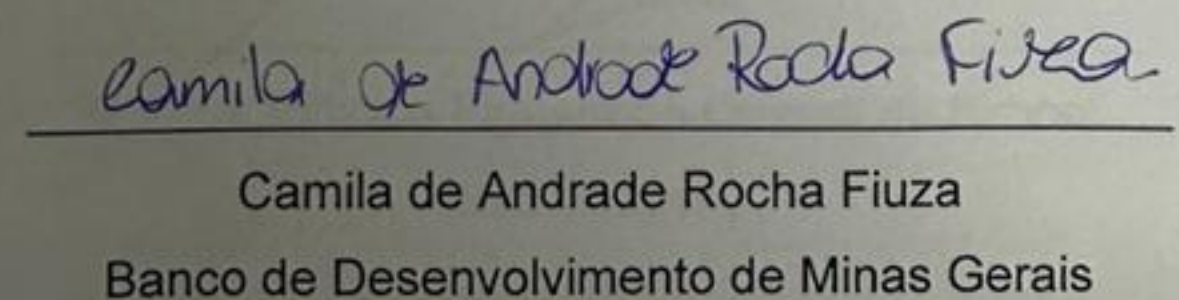 Camila de Andrade Rocha Fiuza
Camila de Andrade Rocha Fiuza
Banco de Desenvolvimento de Minas Gerais